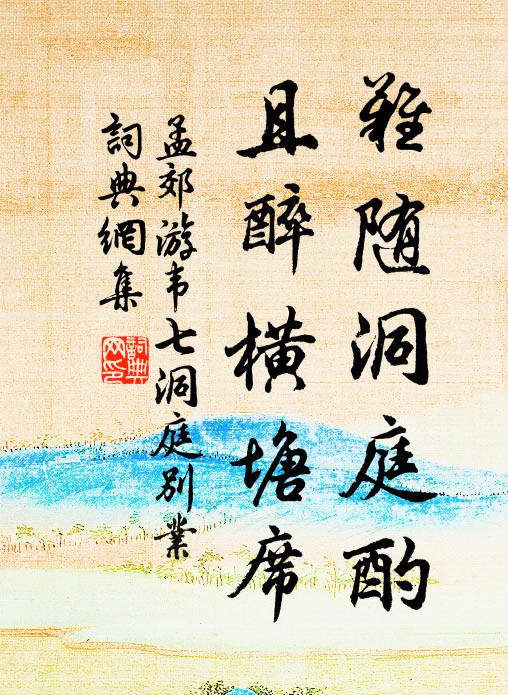 难随洞庭酌
且醉横塘席
孟郊游韦七洞庭别业
词典網集
詞典
网印